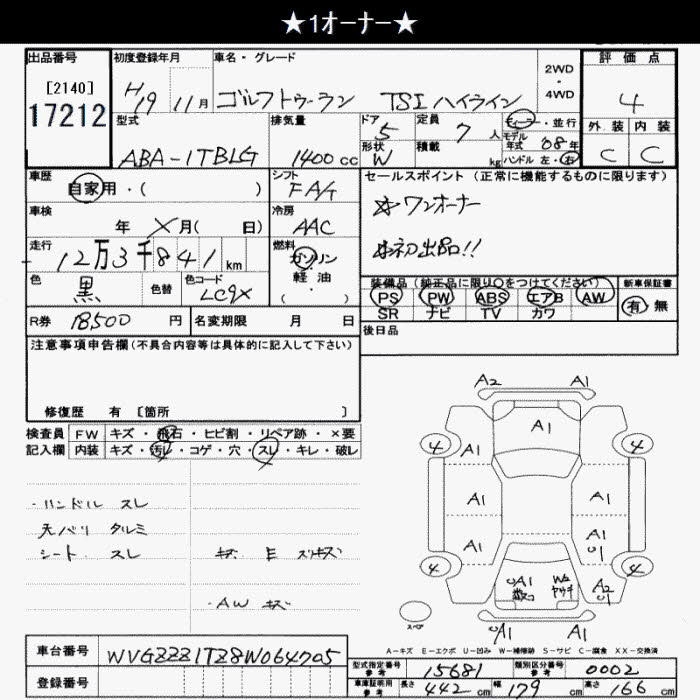 ★1オーナー★
出品番号 初度登録年月 車名・グレード 2WD・4WD 評価点
[2140]
17212 H19 11月 ゴルフトゥーラン TSIハイライン 4
型式 排気量 ドア 定員 ディーラー・並行 外装 内装
ABA-1TBLG 1400cc 5 7人 モデル年式 '08年 C C
形状 W 積載 kg ハンドル 左・右
車歴 シフト セールスポイント(正常に機能するものに限ります)
自家用・( ) FA/T
☆ワンオーナー
車検 冷房
年 X月( 日) AAC
☆初出品!!
走行 燃料
12万3千841km ガソリン・軽油・( )
色 色替 色コード 装備品(純正品に限り○をつけてください) 新車保証書
黒 LC9X PS PW ABS エアB AW 有・無
SR ナビ TV カワ
R券 18500円 名変期限 月 日 後日品
注意事項申告欄(不具合内容等は具体的に記入して下さい)
修復歴 有 [箇所 ]
検査員 FW キズ・飛石・ヒビ割・リペア跡・×要
記入欄 内装 キズ・汚レ・コゲ・穴・スレ・キレ・破レ
A2 A1
A1
4 4
A1 A1
A1 A1
A1 A1
U1
4 4
UA1 W2 A2
U1
・ハンドル スレ
天バリ タルミ
シート スレ キズ E スリキズ
・AW キズ
スペア UA1 A1
A-キズ E-エクボ U-凹み W-補修跡 S-サビ C-腐食 XX-交換済
車台番号 WVGZZZ1TZ8W064705
型式指定番号 参考 15681 類別区分番号 参考 0002
登録番号 車庫証明用 参考 長さ 442cm 幅 179cm 高さ 166cm